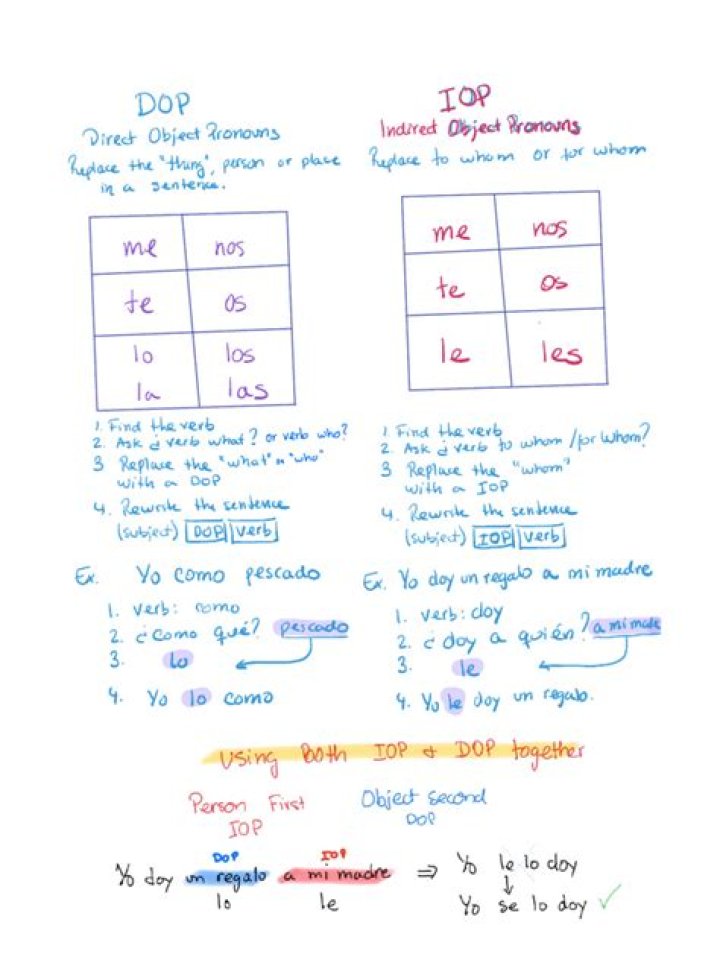 DOP
Direct Object Pronouns
Replace the "thing", person or place
in a sentence.
me nos
te os
lo los
la las
1. Find the verb
2. Ask ¿ verb what? or verb who?
3 Replace the "what" or "who"
with a DOP
4. Rewrite the sentence
(subject) DOP verb
Ex. Yo como pescado
1. verb: como
2. ¿Como qué? pescado
3. lo
4. Yo lo como
IOP
Indired Object Pronouns
Replace to whom or for whom
me nos
te os
le les
1. Find the verb
2. Ask ¿ verb to whom / for whom?
3 Replace the "whom"
with a IOP
4. Rewrite the sentence
(subject) IOP verb
Ex. Yo doy un regalo a mi madre
1. verb: doy
2. ¿ doy a quién? a mi made
3. le
4. Yo le doy un regalo.
Using Both IOP & DOP together
Person First
IOP
Object second
DOP
DOP IOP
Yo doy un regalo a mi madre ⇒ Yo le lo doy
lo le
↓
Yo se lo doy ✓